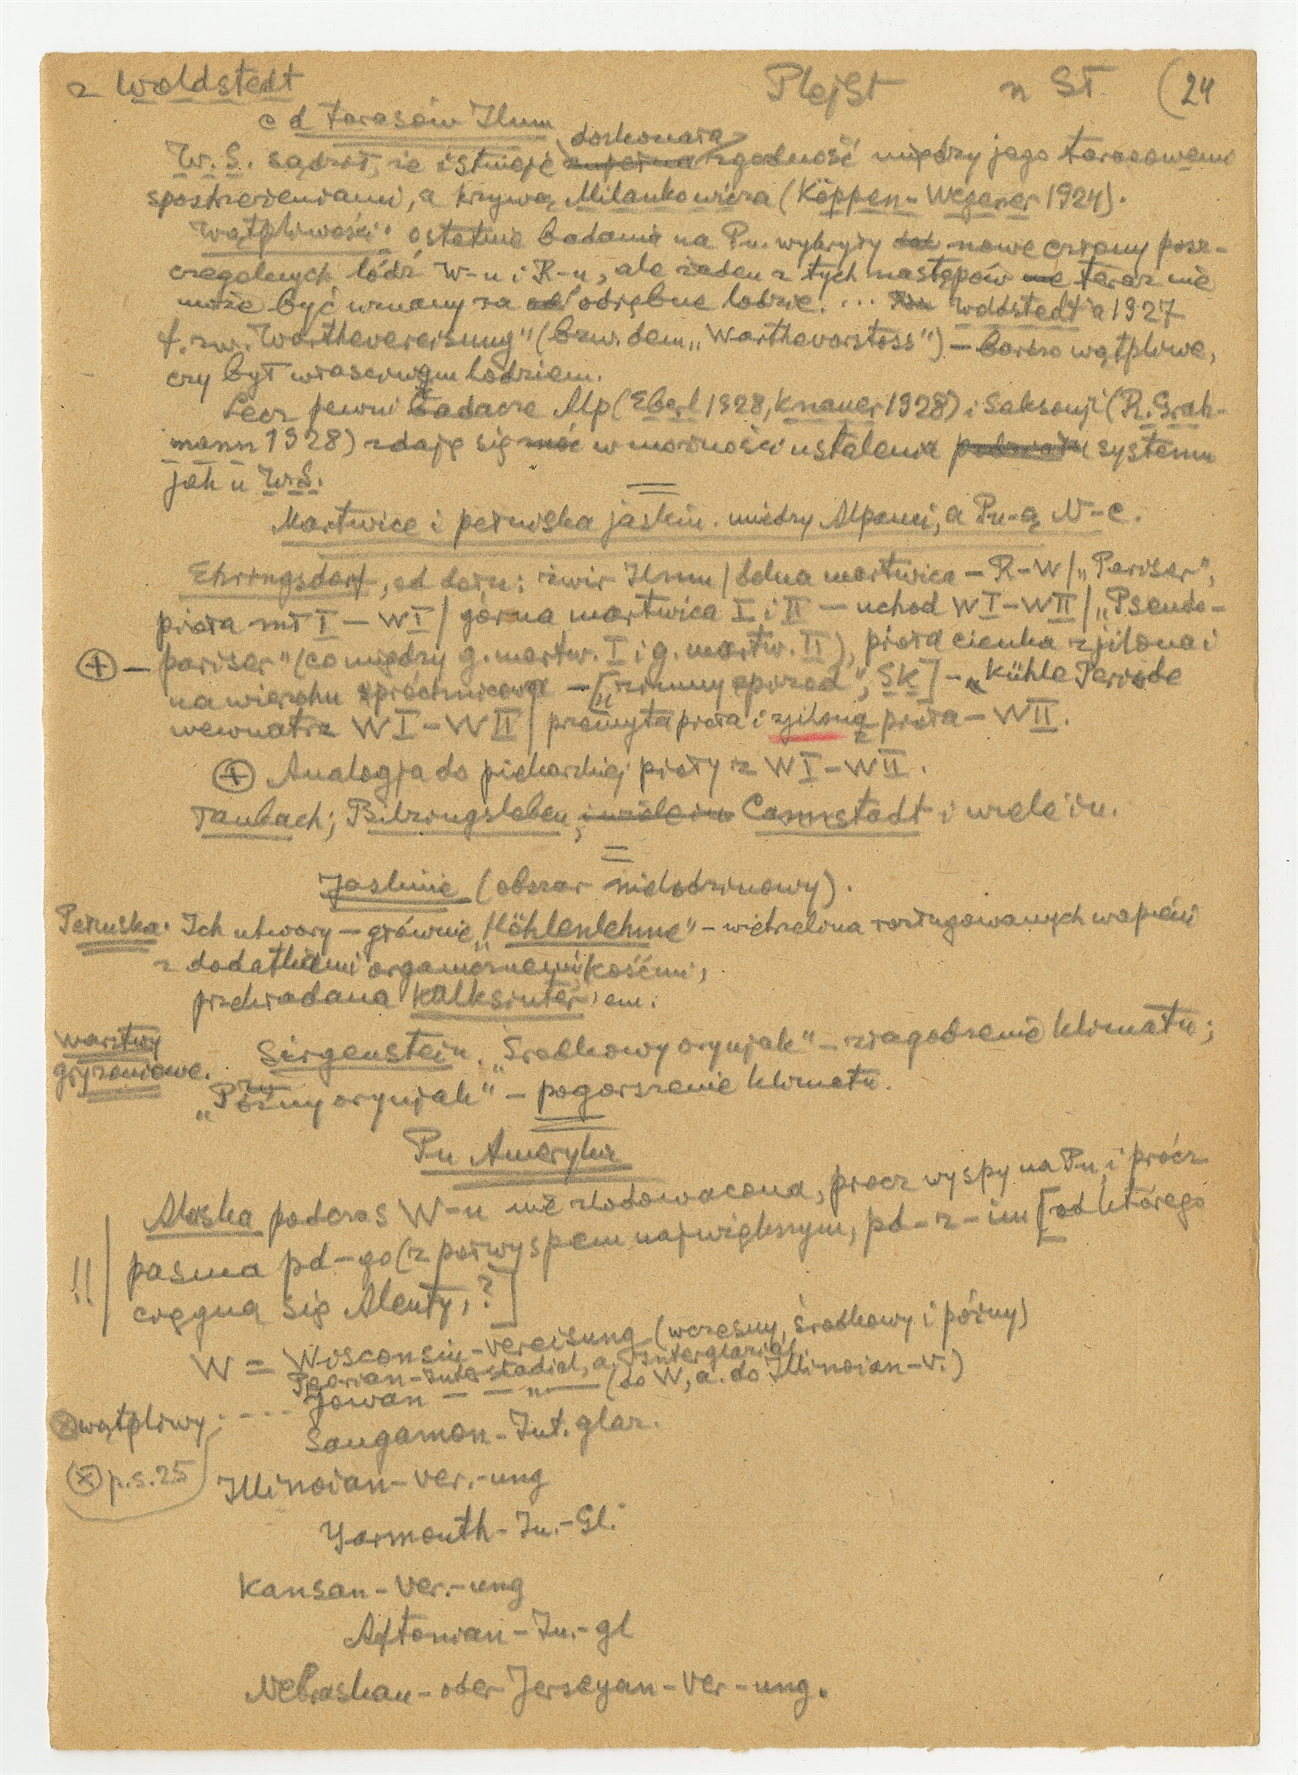 z Woldstedt Plejst n St. (24
c d tarasów Ilmu
W. S. sądził, że istnieje zupełna doskonała zgodność między jego tarasowemi
spostrzeżeniami, a krzywą Milankowicza (Köppen-Wegener 1924).
Wątpliwości: ostatnie badania na Pn. wykryły nowe czramy posz-
czególnych lódź W-u i R-u, ale żaden z tych nastąpów ne teraz nie
może być uznany za odrębne lodzie. ... Woldstedt'a 1927
t. zw. "Warthevereisung" (bzw. dem "Warthevorstoss") - bardzo wątpliwe,
czy był właściwym lodziem.
Lecz pewni badacze Alp (Eberl 1928, Knauer 1928) i Saksonji (R. Grah-
mann 1928) zdają się w możności ustalenia podziału systemu
jak u W.S.
Martwice i petruska jaskin. między Alpami, a Pn-ą N-c.
Ehringsdorf, od dołu: żwir Ilmu / dolna martwica - R-W / "Pariser",
pióra mł I - WI / górna martwica I i II - uchod WI-WII / "Pseudo-
pariser" (co między g. martw. I i g. martw. II), pióra cienka zjilona i
na wierzchu spróchnicowa - ["zimny epizod", SK] - "Kühle Periode
wewnątrz WI-WII / przemyta pióra i zjiloną pióra - WII.
(+) Analogja do piekarskiej pióry z WI-WII.
Taubach; Bilzingsleben, Cannstadt i wiele in.
=
Jaskinie (obszar nielodzinowy).
Petruska. Ich utwory - głównie "Höhlenlehme" - wietrzelina rozługowanych wapieni
z dodatkiemi organicznemi, kośćmi,
przekradana Kalksinter'em.
warstwy gryzoniowe. Sirgenstein. "Środkowy orynjak" - złagodzenie klimatu;
"Późny orynjak" - pogorszenie klimatu.
Pn Ameryka
Alaska podczas W-u nie zlodowacona, prócz wyspy na Pn, i prócz
!! pasma pd-go (z półwyspem największym, pd-z-im [od którego
ciągną się Aleuty, ?]
W = Wisconsin-Vereisung (wczesny, środkowy i późny)
Peorian-Interstadial, a. Interglazial.
wątpliwy ... Jowan - - " - (do W, a. do Illinoian-V.)
Sangamon-Int. glaz.
(x) p.s. 25 Illinoian-Ver.-ung
Yarmouth-In.-Gl.
Kansan-Ver.-ung
Aftonian-In.-gl
Nebraskan- oder Jerseyan-Ver-ung.